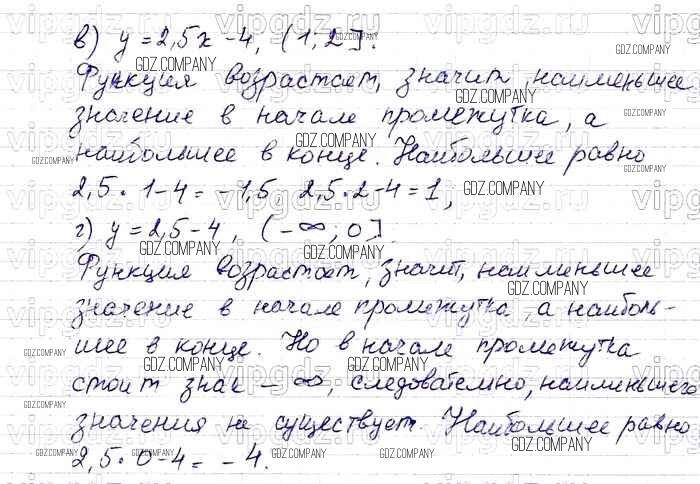 в) y = 2,5x - 4, (1; 2].
Функция возрастает, значит, наименьшее
значение в начале промежутка, а
наибольшее в конце. Наибольшее равно
2,5 · 1 - 4 = - 1,5, 2,5 · 2 - 4 = 1,
г) y = 2,5 - 4, (- ∞; 0].
Функция возрастает, значит, наименьшее
значение в начале промежутка, а наиболь-
шее в конце. Но в начале промежутка
стоит знак - ∞, следовательно, наименьшего
значения не существует. Наибольшее равно
2,5 · 0 - 4 = - 4.
GDZ.COMPANY
vipgdz.ru